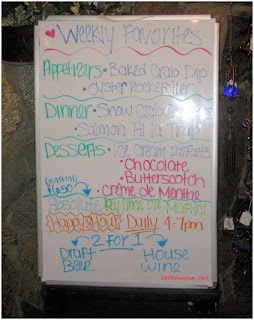 Weekly Favorites
Appetizers • Baked Crab Dip
• Oyster Rockefeller
Dinner • Snow Crab
• Salmon A la
Desserts • Ice Cream Parfaits
• Chocolate
• Butterscotch
• Crème de Menthe
(martini)
$6.50
Absolute Key Lime Pie Martini
Happy Hour Daily 4-7pm
2 for 1
Draft House
Beer Wine